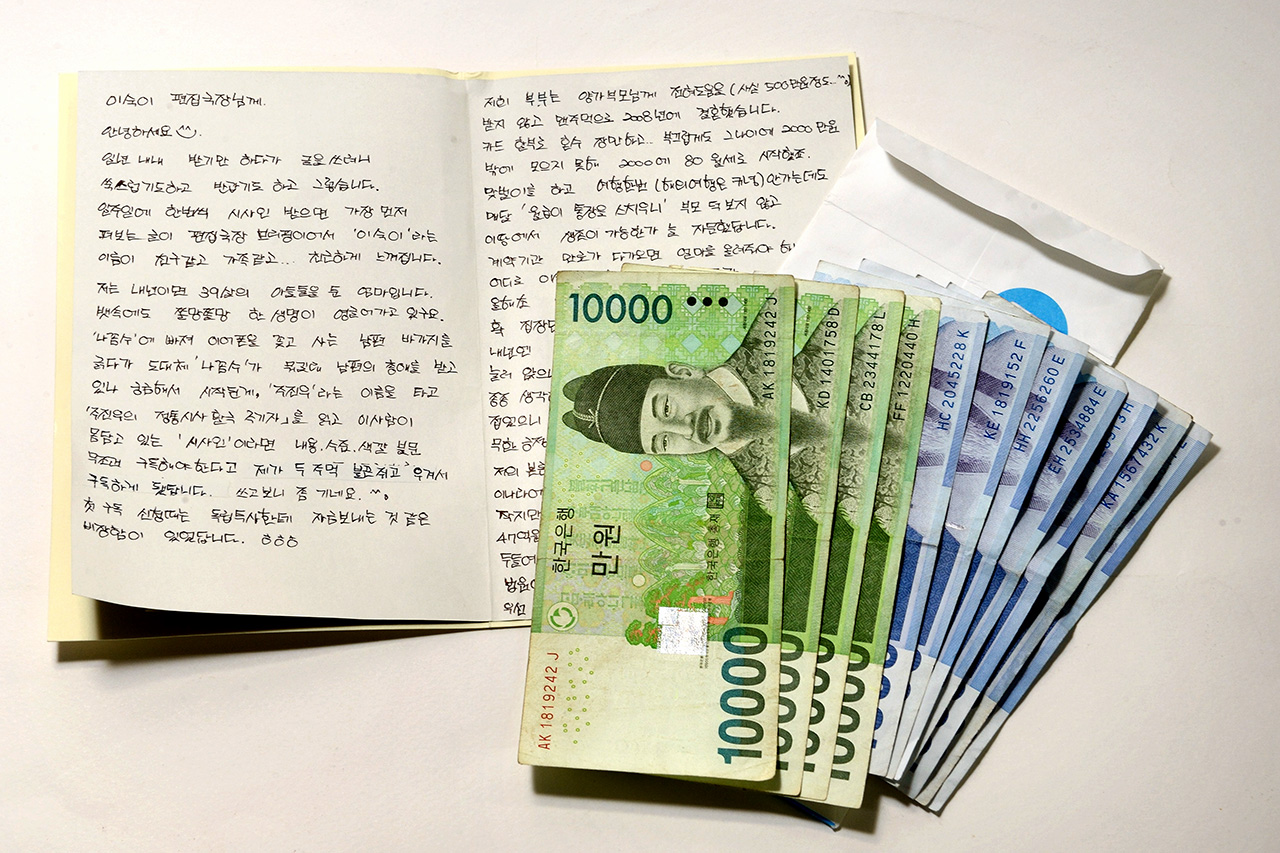 이숙이 편집국장님께.
안녕하세요
일년 내내 받기만 하다가 글을 쓰려니
쑥쓰럽기도하고 반갑기도 하고 그렇습니다.
일주일에 한번씩 시사인 받으면 가장 먼저
펴보는 글이 편집국장 브리핑이어서 '이숙이'라는
이름이 친구같고 가족같고... 친근하게 느껴집니다.
저는 내년이면 39살의 아들둘을 둔 엄마입니다.
뱃속에도 꼬망꼬망 한 생명이 영글어가고 있구요.
'나꼼수'에 빠져 이어폰을 꽂고 사는 남편 바가지를
긁다가 도대체 '나꼼수'가 뭐길래 남편의 총애를 받고
있나 궁금해서 시작한게, '주진우'라는 이름을 타고
「주진우의 정통시사 활극 주기자」를 읽고 이사람이
몸담고 있는 '시사인'이라면 내용.수준.색깔 불문
무조건 구독해야한다고 제가 두 주먹 불끈쥐고 우겨서
구독하게 됐답니다. 쓰고보니 좀 기네요. ^^;
첫 구독 신청때는 독립투사한테 자금보내는 것 같은
비장함이 있었답니다. ㅎㅎㅎ
저희 부부는 양가부모님께 전혀도움을 (사실 500만원정도..^^;)
받지 않고 맨주먹으로 2008년에 결혼했습니다.
카드 할부로 혼수 장만하고... 부끄럽게도 그나이에 2000만원
밖에 모으지 못해 2000에 80 월세로 시작했죠.
맞벌이를 하고 여행한번 (해외여행은 커녕) 안가는데도
매달 '월급이 통장을 스치우니' 부모 덕 보지 않고
이땅에서 생존이 가능한가 늘 자문한답니다.
계약기간 만료가 다가오면 얼마를 올려줘야 하
어디로 이
올해초
확 집장만
내년엔
늘러 앉으
종종 생각
접었으니
무한 긍정
저의 본을
이나라에
작지만
47억원
두들여
밥원이
우선
10000
AK 1819242 J
한국은행
만원
한국은행 총재
10000
AK 1819242 J
KD 1401758 D
10000
CB 2344178 L
10000
FF 1220440 H
10000
HC 2045228 K
KE 1819152 F
HH 2256260 E
EH 2534884 E
KA 1567432 K